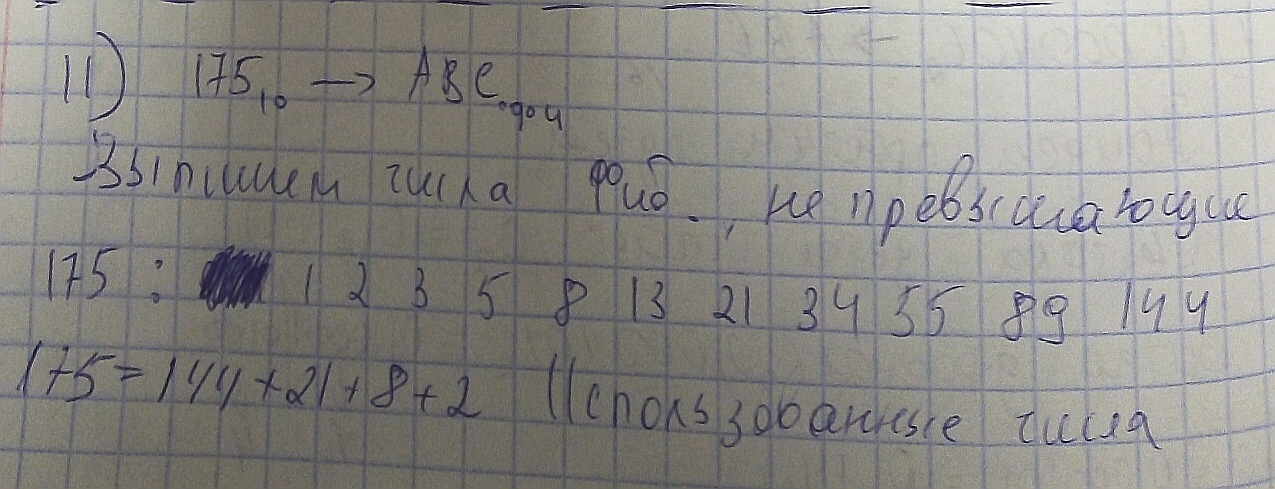 11) 175₁₀ → ABC фиб
Выпишем числа Фиб., не превышающие
175 : 1 2 3 5 8 13 21 34 55 89 144
175 = 144 + 21 + 8 + 2 Использованные числа